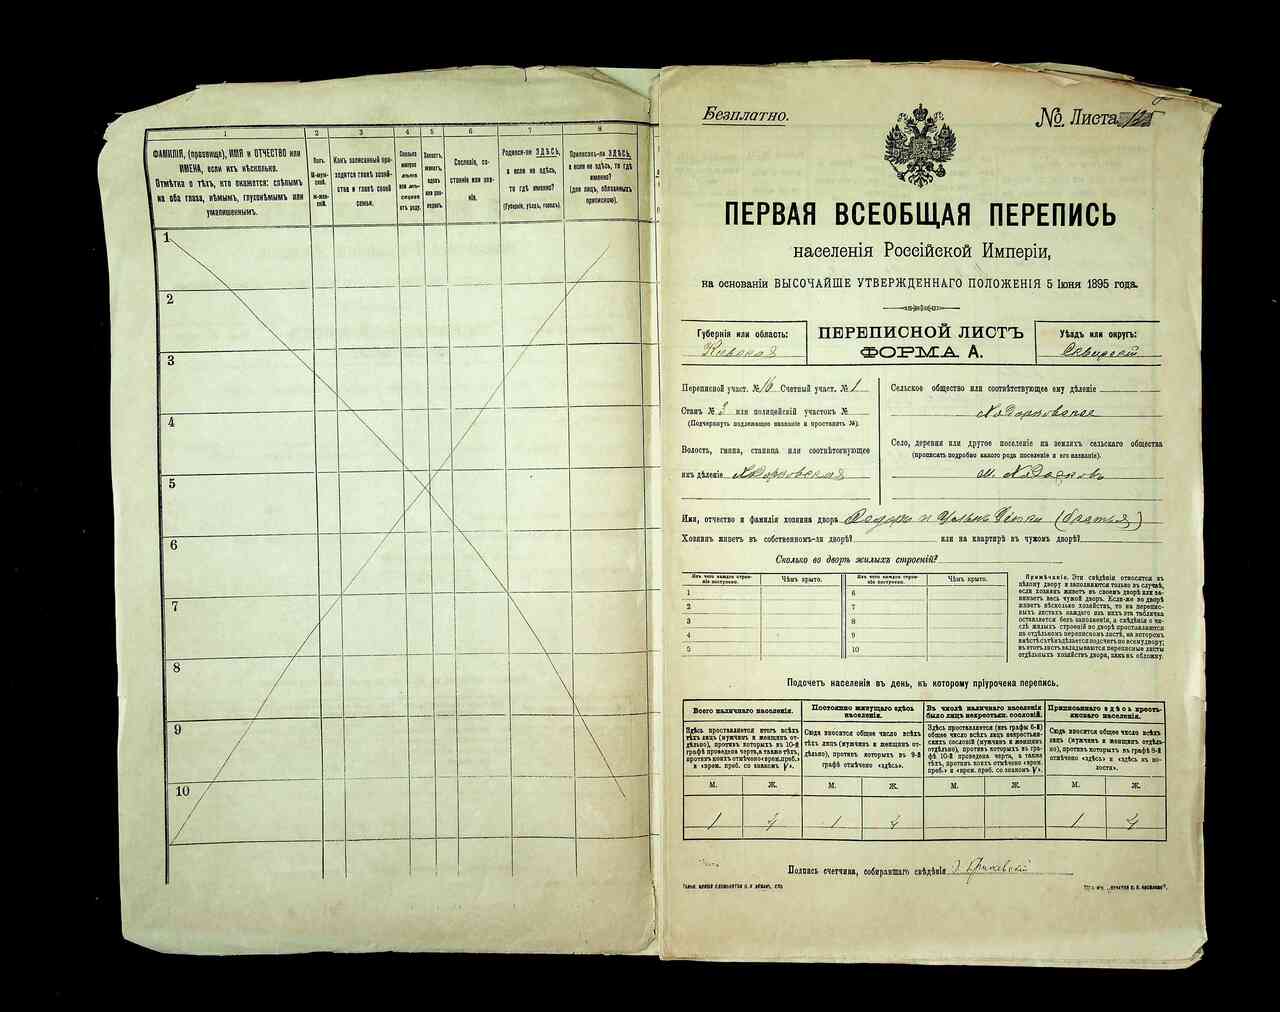 1
2
3
4
5
6
7
8
ФАМИЛІЯ, (прозвище), ИМЯ и ОТЧЕСТВО или
ИМЕНА, если ихъ нѣсколько.
Отмѣтка о тѣхъ, кто окажется: слѣпымъ
на оба глаза, нѣмымъ, глухонѣмымъ или
умалишеннымъ.
Полъ.
М-муж-
ской.
Ж-жен-
скій.
Какъ записанный при-
ходится главѣ хозяй-
ства и главѣ своей
семьи.
Сколько
минуло
лѣтъ
или мѣ-
сяцевъ
отъ роду.
Холостъ,
женатъ,
вдовъ
или раз-
веденъ.
Сословіе, со-
стояніе или зва-
ніе.
Родился-ли ЗДѢСЬ,
а если не здѣсь,
то гдѣ
именно?
(Губернія, уѣздъ, городъ).
Приписанъ-ли ЗДѢСЬ,
а если не здѣсь, то гдѣ
именно?
(для лицъ, обязанныхъ
припискою).
1
2
3
4
5
6
7
8
9
10
Безплатно.
№ Листа
ПЕРВАЯ ВСЕОБЩАЯ ПЕРЕПИСЬ
населенія Россійской Имперіи,
на основаніи ВЫСОЧАЙШЕ УТВЕРЖДЕННАГО ПОЛОЖЕНІЯ 5 Іюня 1895 года.
Губернія или область:
Кіевская
ПЕРЕПИСНОЙ ЛИСТЪ
ФОРМА А.
Уѣздъ или округъ:
Сквирскій
Переписной участ. № 16 Счетный участ. № 1
Станъ № 3 или полицейскій участокъ №
(Подчеркнуть подлежащее названіе и проставить №).
Волость, гмина, станица или соотвѣтствующее
имъ дѣленіе
Сельское общество или соотвѣтствующее ему дѣленіе
Село, деревня или другое поселеніе на земляхъ сельскаго общества
(прописать подробно какого рода поселеніе и его названіе).
м.
Имя, отчество и фамилія хозяина двора (братья)
Хозяинъ живетъ въ собственномъ-ли дворѣ? или на квартирѣ въ чужомъ дворѣ?
Сколько во дворѣ жилыхъ строеній?
Изъ чего каждое строе-
ніе построено.
Чѣмъ крыто.
Изъ чего каждое строе-
ніе построено.
Чѣмъ крыто.
1
2
3
4
5
6
7
8
9
10
Примѣчаніе. Эти свѣдѣнія относятся къ
цѣлому двору и заполняются только въ случаѣ,
если хозяинъ живетъ въ своемъ дворѣ или за-
нимаетъ весь чужой дворъ. Если-же во дворѣ
живетъ нѣсколько хозяйствъ, то на перепис-
ныхъ листахъ каждаго изъ нихъ эта табличка
оставляется безъ заполненія, а свѣдѣнія о чи-
слѣ жилыхъ строеній во дворѣ проставляются
на отдѣльномъ переписномъ листѣ, на которомъ
вмѣстѣ съ тѣмъ дѣлается подсчетъ по всему двору;
въ этотъ листъ вкладываются переписные листы
отдѣльныхъ хозяйствъ двора, какъ въ обложку.
Подсчетъ населенія въ день, къ которому пріурочена перепись.
Всего наличнаго населенія.
Постоянно живущаго здѣсь
населенія.
Въ числѣ наличнаго населенія
было лицъ некрестьян. сословій.
Приписаннаго здѣсь кресть-
янскаго населенія.
Здѣсь проставляется итогъ всѣхъ
тѣхъ лицъ (мужчинъ и женщинъ от-
дѣльно), противъ которыхъ въ 10-й
графѣ проведена черта, а также тѣхъ,
противъ коихъ отмѣчено «врем. преб.»
и «врем. преб. со знакомъ V».
Сюда вносится общее число всѣхъ
тѣхъ лицъ (мужчинъ и женщинъ от-
дѣльно), противъ которыхъ въ 9-й
графѣ отмѣчено «здѣсь».
Здѣсь проставляется (изъ графы 6-й)
общее число всѣхъ лицъ некрестьян-
скихъ сословій (мужчинъ и женщинъ
отдѣльно), противъ которыхъ въ гра-
фѣ 10-й проведена черта, а также
тѣхъ, противъ коихъ отмѣчено «врем.
преб.» и «врем. преб. со знакомъ V».
Сюда вносится общее число всѣхъ
лицъ (мужчинъ и женщинъ отдѣль-
но), противъ которыхъ въ графѣ 8-й
отмѣчено «здѣсь» и «здѣсь въ во-
лости».
М.
Ж.
М.
Ж.
М.
Ж.
М.
Ж.
1
4
1
4
1
4
Подпись счетчика, собиравшаго свѣдѣнія